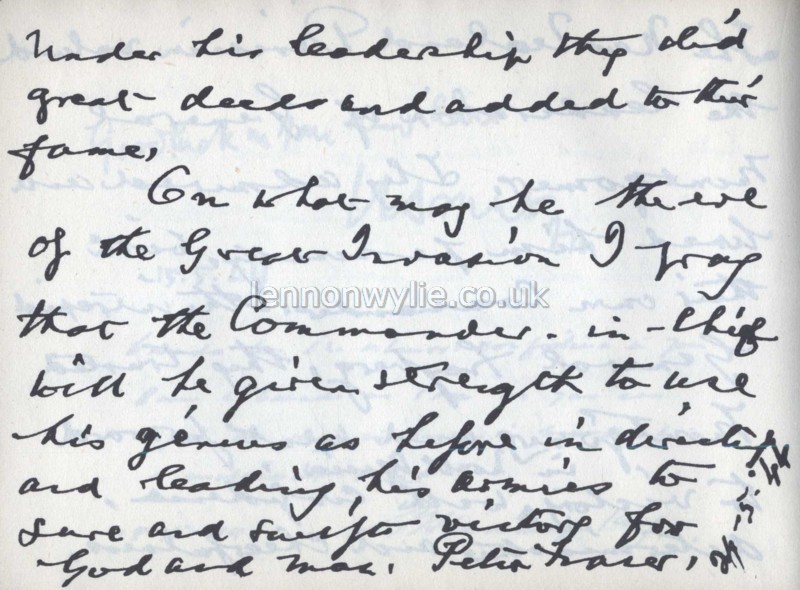 Under his leadership they did
great deeds and added to their
fame.
On what may be the eve
of the Great Invasion I pray
lennonwylie.co.uk
that the Commander-in-Chief
will be given strength to use
his genius as before in directing
and leading his armies to
sure and swift victory for
God and man. Peter Fraser,